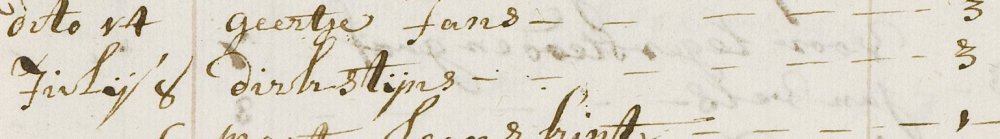 dito 14 geertje Jans - - - - - - 3
Julij 8 dirk stijns - - - - - - - 3
kint - - - - - 1